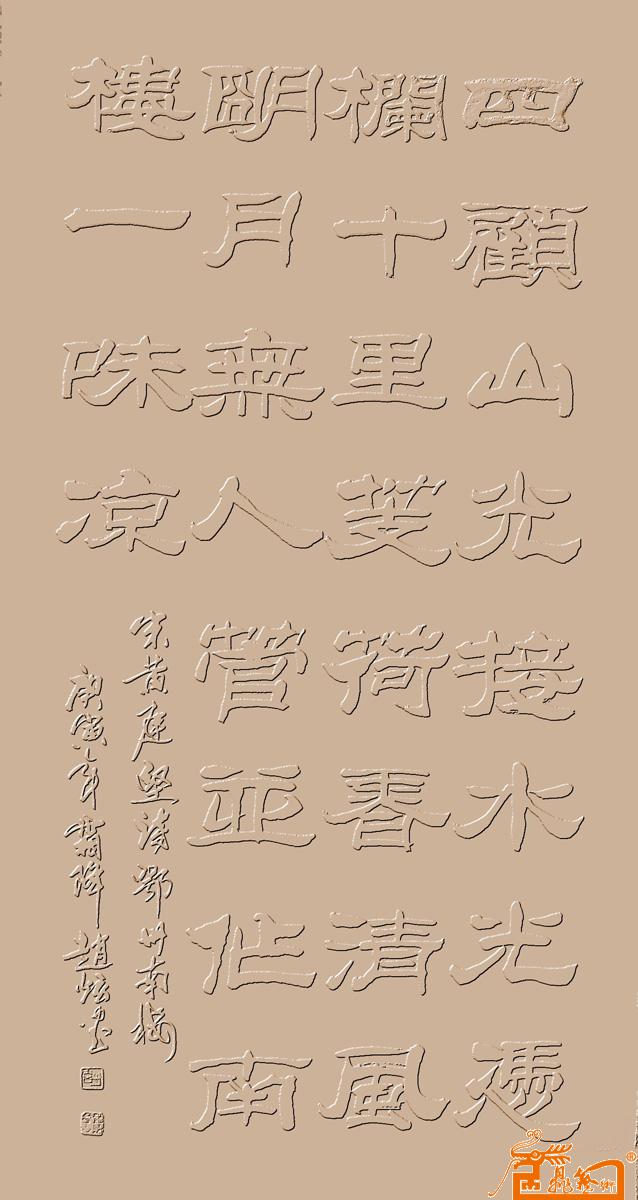 四顧山光接水光憑
欄十里芰荷香清風
明月無人管並作南
樓一味凉
宋黄庭堅詩鄂州南樓
庚寅年霜降趙炫書